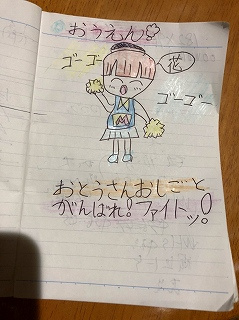 おうえん
ゴーゴー
花
ゴーゴー
M
おとうさんおしごと
がんばれ!ファイトッ!